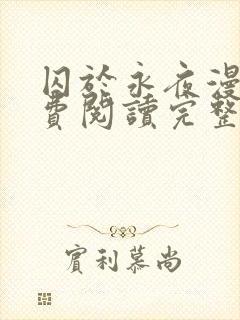 囚於永夜漫
費閱讀完整
實利慕尚